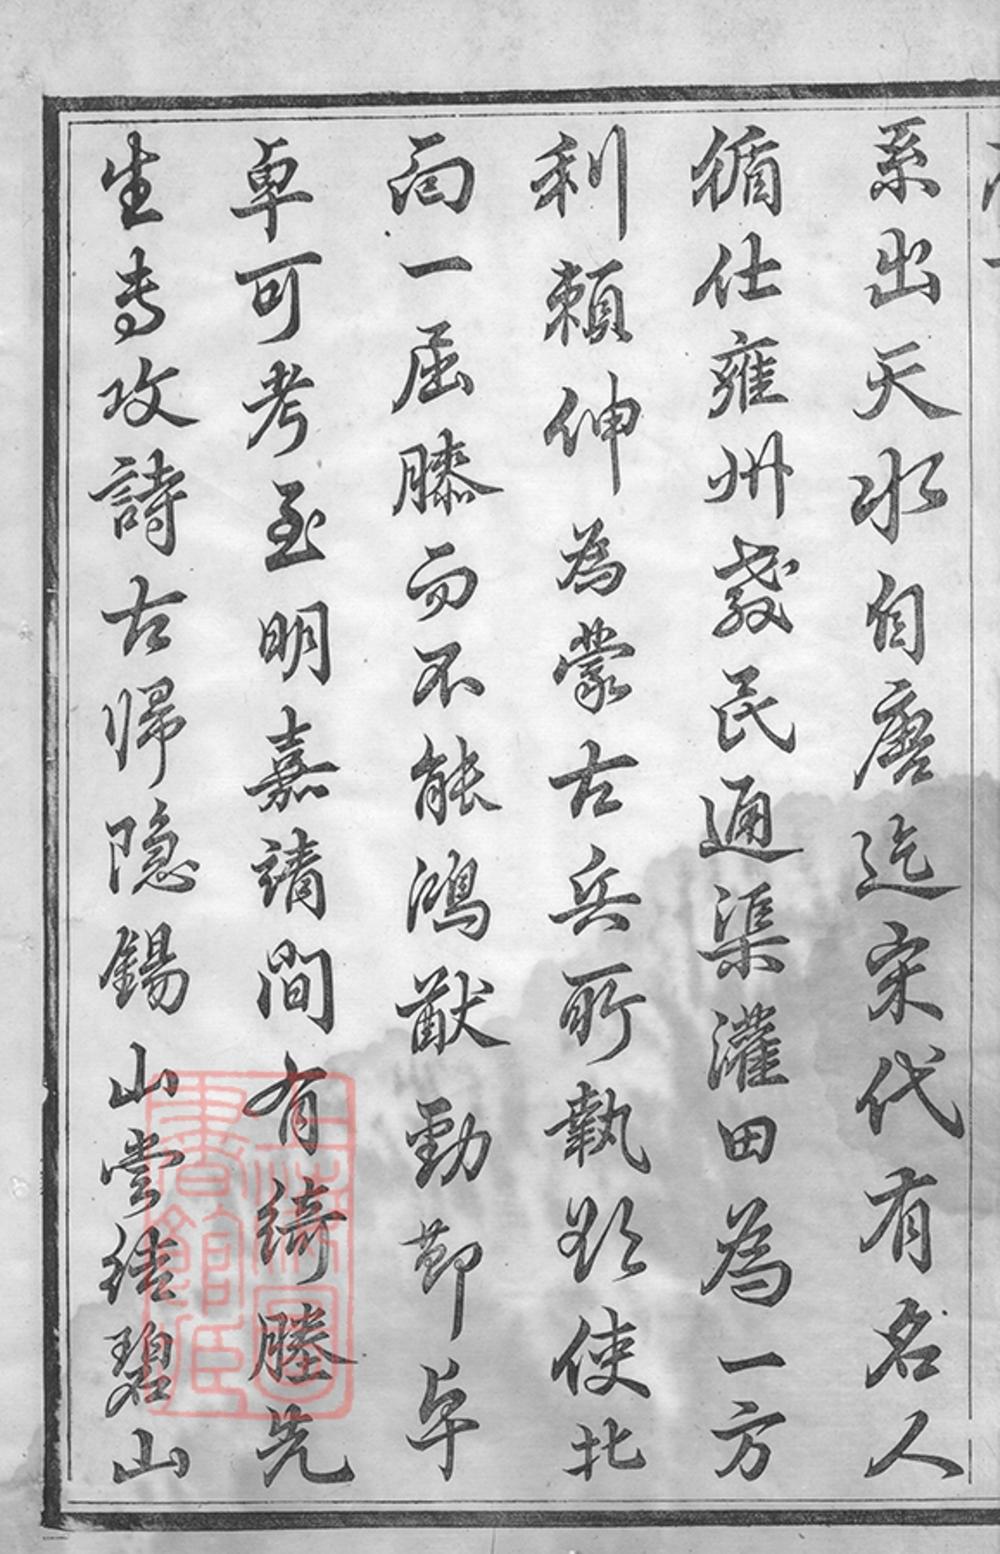 系出天水自唐迄宋代有名人
循仕雍州教民通渠灌田為一方
利賴伸為蒙古兵所執欲使北
面一屈膝而不能鴻猷勁節卓
卓可考至明嘉靖間有綺塍先
生專攻詩古歸隱錫山嘗結碧山
上海圖
書館藏